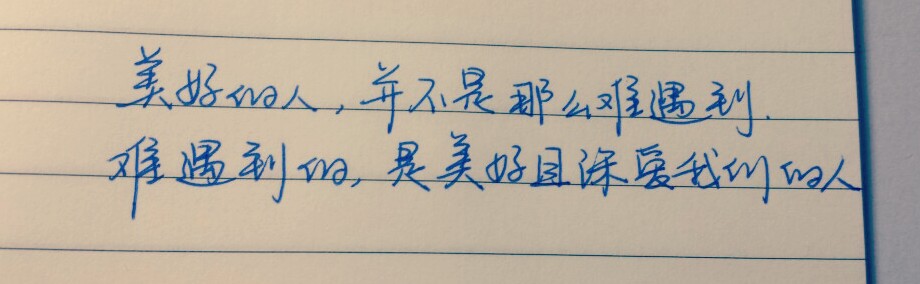 美好的人，并不是那么难遇到.
难遇到的，是美好且深爱我们的人